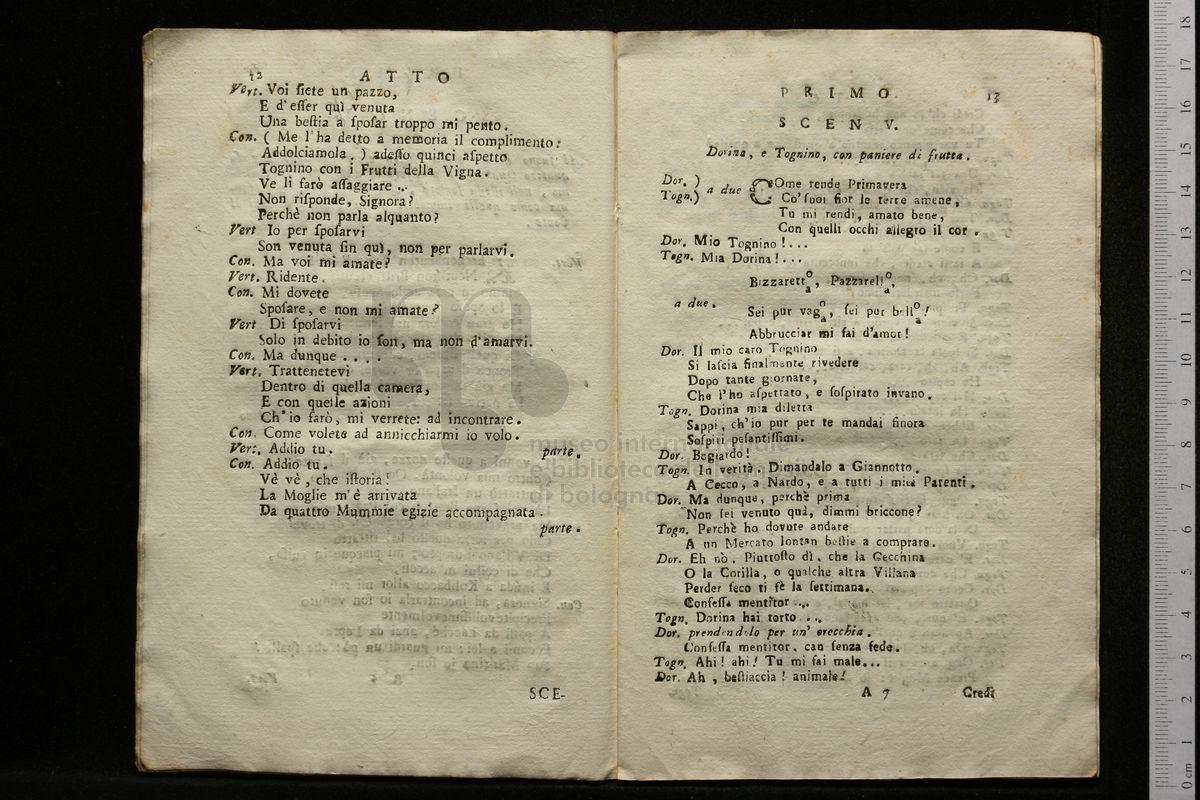 12 ATTO
Vert. Voi ſiete un pazzo,
E d'eſſer quì venuta
Una beſtia a ſpoſar troppo mi pento.
Con. ( Me l'ha detto a memoria il complimento:
Addolciamola. ) adeſſo quinci aſpetto
Tognino con i Frutti della Vigna.
Ve li farò aſſaggiare ...
Non riſponde, Signora?
Perchè non parla alquanto?
Vert Io per ſpoſarvi
Son venuta ſin quì, non per parlarvi.
Con. Ma voi mi amate?
Vert. Ridente.
Con. Mi dovete
Spoſare, e non mi amate?
Vert. Di ſpoſarvi
Solo in debito io ſon, ma non d'amarvi.
Con. Ma dunque . . . .
Vert. Trattenetevi
Dentro di quella camera,
E con quelle azioni
Ch'io farò, mi verrete: ad incontrare.
Con. Come volete ad annicchiarmi io volo.
Vert. Addio tu. parte.
Con. Addio tu.
Vè vè, che iſtoria!
La Moglie m'è arrivata
Da quattro Mummie egizie accompagnata.
parte.
SCE-
PRIMO. 13
SCEN V.
Dorina, e Tognino, con paniere di frutta.
Dor. )
Togn.) a due COme rende Primavera
Co'ſuoi fior le terre amene,
Tu mi rendi, amato bene,
Con quelli occhi allegro il cor.
Dor. Mio Tognino!...
Togn. Mia Dorina!...
Bizzarett o a, Pazzarell o a,
a due. Sei pur vag o a, ſei pur bell o a!
Abbrucciar mi fai d'amor!
Dor. Il mio caro Tognino
Si laſcia finalmente rivedere
Dopo tante giornate,
Che l'ho aſpettato, e ſoſpirato invano.
Togn. Dorina mia diletta
Sappi, ch'io pur per te mandai finora
Soſpiri peſantiſſimi.
Dor. Bugiardo!
Togn. In verità. Dimandalo a Giannotto,
A Cecco, a Nardo, e a tutti i miei Parenti.
Dor. Ma dunque, perchè prima
Non ſei venuto quà, dimmi briccone?
Togn. Perchè ho dovute andare
A un Mercato lontan beſtie a comprare.
Dor. Eh nò. Piuttoſto dì, che la Cecchina
O la Corilla, o qualche altra Villana
Perder ſeco ti fè la ſettimana.
Confeſſa mentitor ...
Togn. Dorina hai torto ...
Dor. prendendolo per un' orecchia.
Confeſſa mentitor, can ſenza fede.
Togn. Ahi! ahi! Tu mi fai male...
Dor. Ah, beſtiaccia! animale!
A 7 Credi
museo internazionale
e biblioteca della musica
di bologna
0 cm 1 2 3 4 5 6 7 8 9 10 11 12 13 14 15 16 17 18